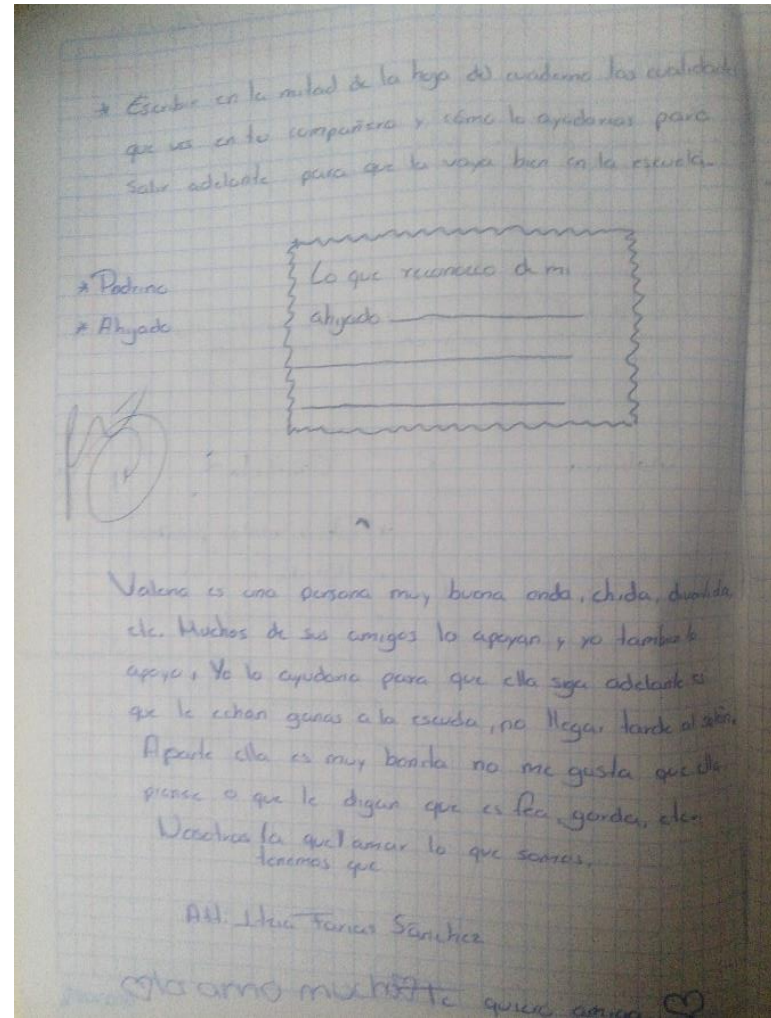 * Escribir en la mitad de la hoja del cuaderno las cualidades
que ves en tu compañero y cómo lo ayudarias para
Salir adelante para que le vaya bien en la escuela.
* Padrino
* Ahijado
Lo que reconozco de mi
ahijado
Valeria es una persona muy buena onda, chida, divertida,
etc. Muchos de sus amigos lo apoyan y yo tambien lo
apoyo, Yo lo ayudaria para que ella siga adelante es
que le echan ganas a la escuela, no llegar tarde al salón.
Aparte ella es muy bonita no me gusta que ella
piense o que le digan que es fea, gorda, etc.
Nosotros la que amar lo que somos.
tenemos que
Att: Farias Sánchez
La amo mucho Te quiero amiga